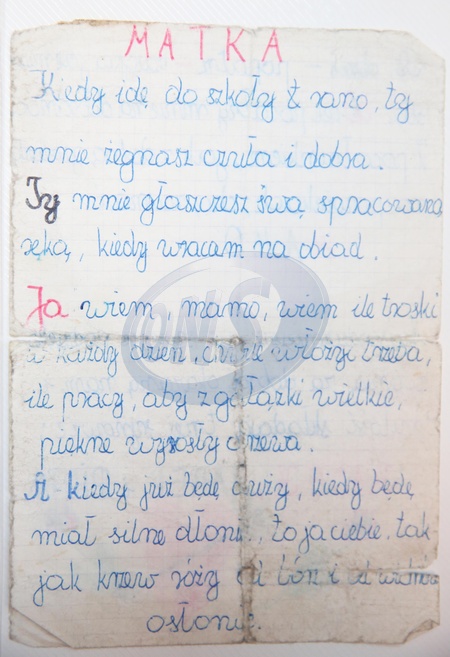 MATKA
Kiedy idę do szkoły z rano, ty
mnie żegnasz czuła i dobra.
Ty mnie głaszczesz swą spracowaną
ręką, kiedy wracam na obiad.
Ja wiem, mamo, wiem ile troski
w każdy dzień, chwile włożyć trzeba,
ile pracy, aby z gałązki wielkie,
piękne wyrosły drzewa.
A kiedy już będę duży, kiedy będę
miał silne dłonie, to ja ciebie, tak
jak krzew róży od i od wichrów
osłonię.
ONS